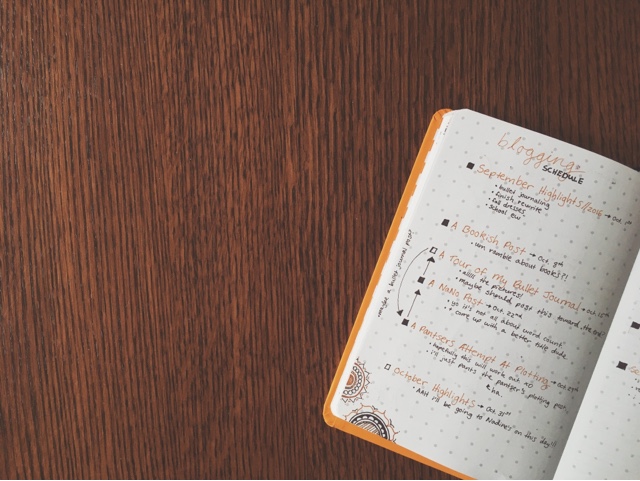 blogging
SCHEDULE
September Highlights//2016 → Oct. 1st
• bullet journaling
• finish rewrite
• fall dresses
• school
A Bookish Post → Oct. 8th
• um ramble about books?!
A Tour of my Bullet Journal → Oct. 15th
• allll the pictures!
• maybe should post this toward the end
A NaNo Post → Oct. 22nd
• it's not all about word count
• come up with a better title dude
A Pantsers Attempt At Plotting → Oct 29th
• hopefully this will work out
• i'll just pants the pantser's plotting post.
ha.
October Highlights → Oct 31st
• AAH I'll be going to Nadine's on this day!!
maybe a bullet journal post?
Se